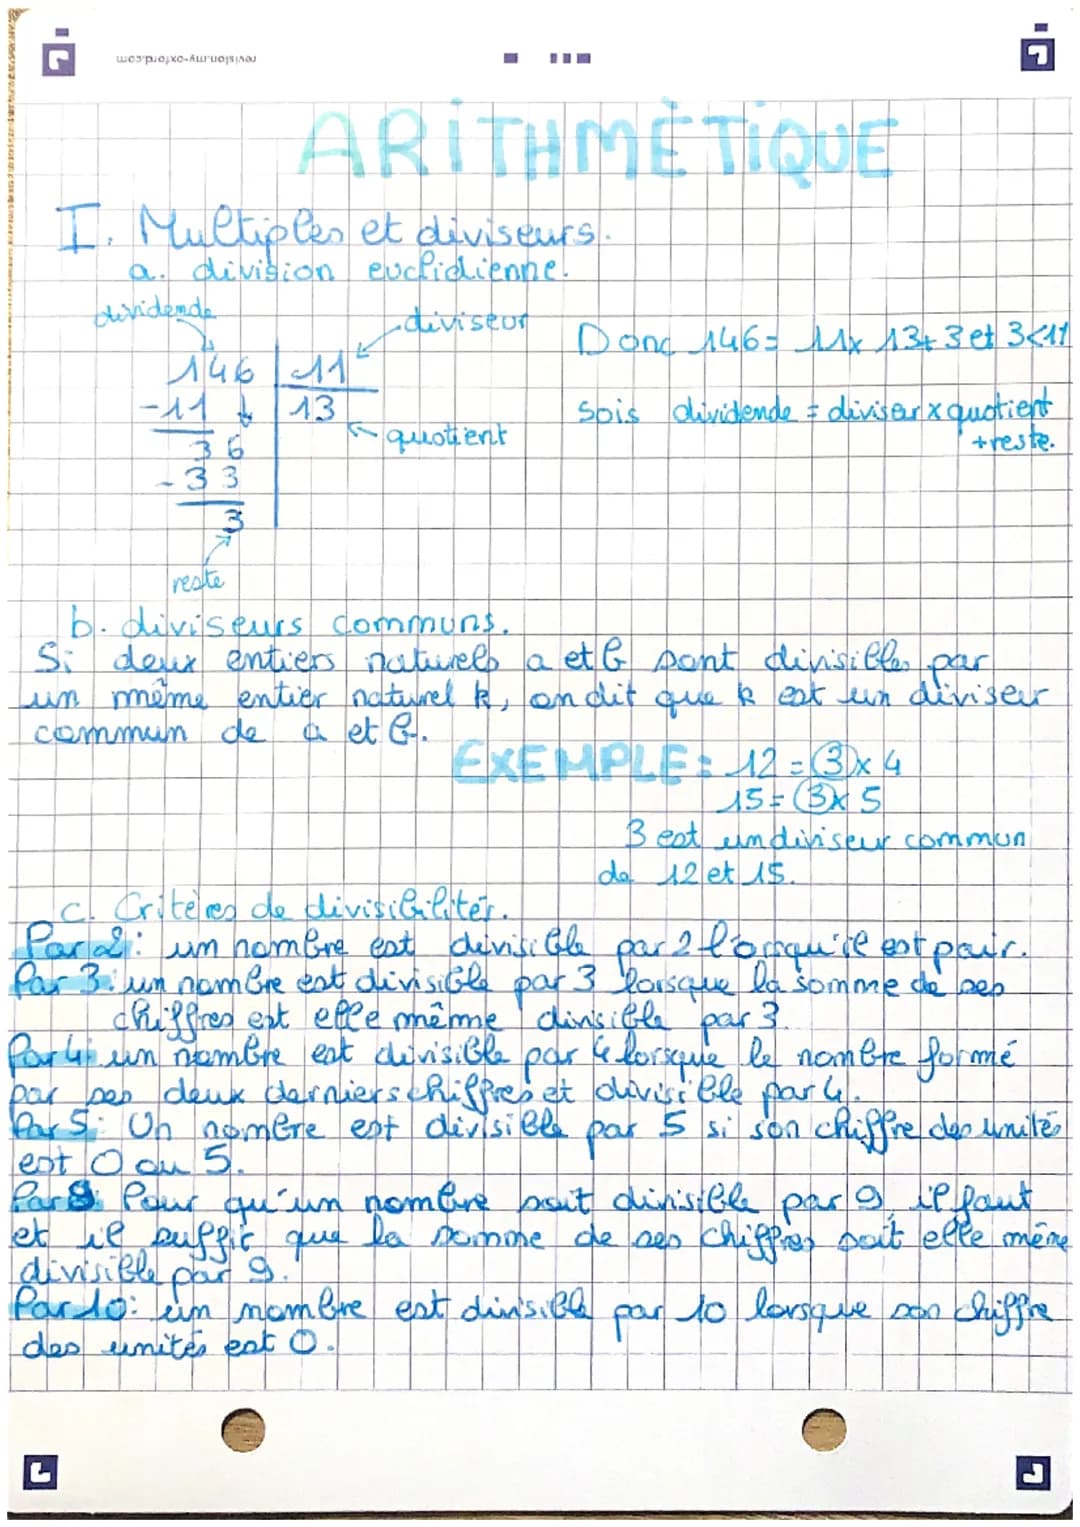 revision.my-oxford.com
ARITHMÈTIQUE
I. Multiples et diviseurs.
a. division euclidienne.
dividende
diviseur
146 11
-11 13
quotient
36
-33
3
reste
Donc 146 = 11x 13+3 et 3<11
Sois dividende = diviseur x quotient
+reste.
b. diviseurs communs.
Si deux entiers naturels a et b sont divisibles par
un même entier naturel k, on dit que k est un diviseur
commun de a et b.
EXEMPLE: 12 = 3 x 4
15 = 3 x 5
3 est un diviseur commun
de 12 et 15.
c. Critères de divisibilités.
Par 2: un nombre est divisible par 2 lorsqu'il est pair.
Par 3: un nombre est divisible par 3 lorsque la somme de ses
chiffres est elle même divisible par 3.
Par 4: un nombre est divisible par 4 lorsque le nombre formé
par ses deux derniers chiffres et divisible par 4.
Par 5: Un nombre est divisible par 5 si son chiffre des unités
est 0 ou 5.
Par 9: Pour qu'un nombre soit divisible par 9, il faut
et il suffit que la somme de ses chiffres soit elle même
divisible par 9.
Par 10: un nombre est divisible par 10 lorsque son chiffre
des unités est 0.